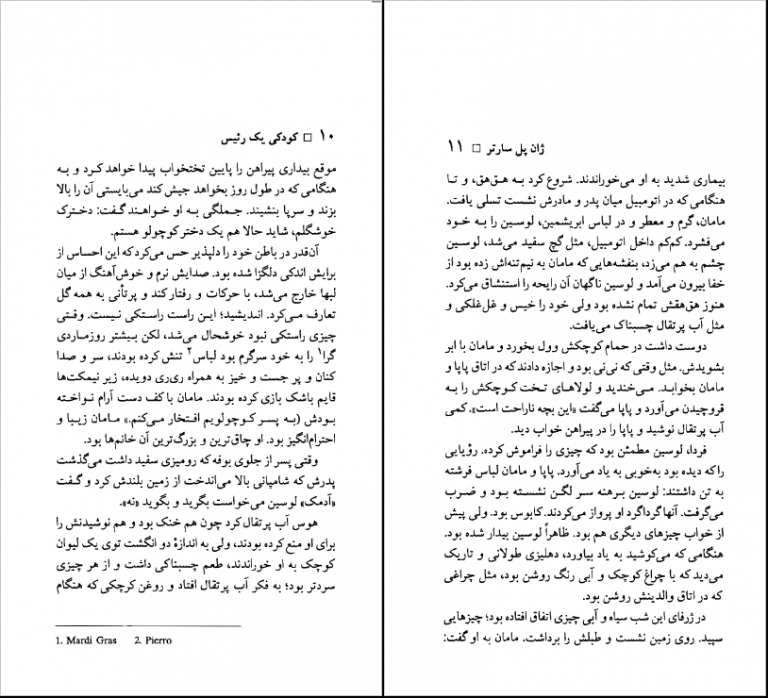 ۱۰ □ کودکی یک رئیس
موقع بیداری پیراهن را پایین تختخواب پیدا خواهد کرد و به
هنگامی که در طول روز بخواهد جیش کند می‌بایستی آن را بالا
بزند و سرپا بنشیند. جملگی به او خواهند گفت: دخترک
خوشگلم، شاید حالا هم یک دختر کوچولو هستم.
آن‌قدر در باطن خود را دلپذیر حس می‌کرد که این احساس از
برایش اندکی دلگزا شده بود. صدایش نرم و خوش‌آهنگ از میان
لبها خارج می‌شد، با حرکات و رفتار کند و پرتأنی به همه گل
تعارف می‌کرد. اندیشید؛ این راست راستکی نیست. وقتی
چیزی راستکی نبود خوشحال می‌شد، لکن بیشتر روز ماردی
گرا۱ را به خود سرگرم بود لباس۲ تنش کرده بودند، سر و صدا
کنان و پر جست و خیز به همراه ری‌ری دویده، زیر نیمکت‌ها
قایم باشک بازی کرده بودند. مامان با کف دست آرام نواخته
بودش (به پسر کوچولویم افتخار می‌کنم.» مامان زیبا و
احترام‌انگیز بود. او چاق‌ترین و بزرگ‌ترین آن خانم‌ها بود.
وقتی پسر از جلوی بوفه که رومیزی سفید داشت می‌گذشت
پدرش که شامپانی بالا می‌انداخت از زمین بلندش کرد و گفت
«آدمک» لوسین می‌خواست بگرید و بگوید «نه».
هوس آب پرتقال کرد چون هم خنک بود و هم نوشیدنش را
برای او منع کرده بودند، ولی به اندازهٔ دو انگشت توی یک لیوان
کوچک به او خوراندند، طعم چسبناکی داشت و از هر چیزی
سردتر بود؛ به فکر آب پرتقال افتاد و روغن کرچکی که هنگام
1. Mardi Gras 2. Pierro
ژان پل سارتر □ ۱۱
بیماری شدید به او می‌خوراندند. شروع کرد به هق‌هق، و تا
هنگامی که در اتومبیل میان پدر و مادرش نشست تسلی یافت.
مامان، گرم و معطر و در لباس ابریشمین، لوسین را به خود
می‌فشرد. کم‌کم داخل اتومبیل، مثل گچ سفید می‌شد، لوسین
چشم به هم می‌زد، بنفشه‌هایی که مامان به نیم‌تنه‌اش زده بود از
خفا بیرون می‌آمد و لوسین ناگهان آن رایحه را استنشاق می‌کرد.
هنوز هق‌هقش تمام نشده بود ولی خود را خیس و غل‌غلکی و
مثل آب پرتقال چسبناک می‌یافت.
دوست داشت در حمام کوچکش وول بخورد و مامان با ابر
بشویدش. مثل وقتی که نی‌نی بود و اجازه دادند که در اتاق پاپا و
مامان بخوابد. می‌خندید و لولاهای تخت کوچکش را به
قروچیدن می‌آورد و پاپا می‌گفت «این بچه ناراحت است». کمی
آب پرتقال نوشید و پاپا را در پیراهن خواب دید.
فردا، لوسین مطمئن بود که چیزی را فراموش کرده. رؤیایی
را که دیده بود به‌خوبی به یاد می‌آورد. پاپا و مامان لباس فرشته
به تن داشتند: لوسین برهنه سر لگن نشسته بود و ضرب
می‌گرفت. آنها گرداگرد او پرواز می‌کردند. کابوس بود. ولی پیش
از خواب چیزهای دیگری هم بود. ظاهراً لوسین بیدار شده بود.
هنگامی که می‌کوشید به یاد بیاورد، دهلیزی طولانی و تاریک
می‌دید که با چراغ کوچک و آبی رنگ روشن بود، مثل چراغی
که در اتاق والدینش روشن بود.
در ژرفای این شب سیاه و آبی چیزی اتفاق افتاده بود؛ چیزهایی
سپید. روی زمین نشست و طبلش را برداشت. مامان به او گفت: